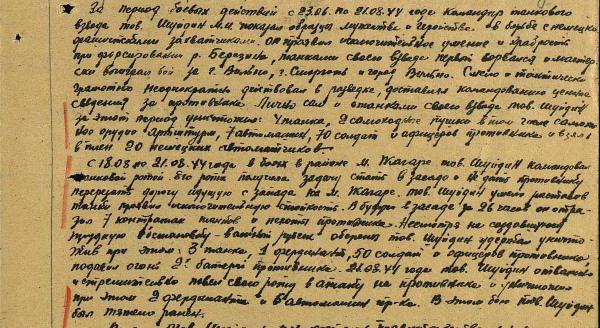 За период боевых действий с 23.06. по 21.08.44 года командир танкового
взвода тов. Шуйдин М.И. показал образцы мужества и геройства в борьбе с немецко
фашистскими захватчиками. Он проявил исключительное умение и храбрость
при форсировании р. Березина, танками своего взвода первый ворвался и мастер-
ски возглавил бой за г. Вильно, г. Сморгонь и город Вильно. Смело и тактически
грамотно неоднократно действовал в разведке, доставляя командованию ценные
сведения за противника. Лично сам и танками своего взвода тов. Шуйдин
за этот период уничтожил: танка, 2 самоходные пушки в том числе самоход-
ное орудие Артштурм, 7 автомашин, 70 солдат и офицеров противника и взял
в плен 20 немецких автоматчиков.
С 18.08 по 21.08.44 года в боях в районе М. Жагаре тов. Шуйдин командовал
танковой ротой. Его рота получила задачу стать в засаду и не дать противнику
перерезать дорогу идущую с запада на М. Жагаре. Тов. Шуйдин умело расставив
танки проявил исключительную стойкость. Будучи в засаде за 26 часов он отра-
зил 7 контратак танков и пехоты противника. Несмотря на создавшуюся
трудную обстановку рубеж обороны тов. Шуйдин удержал уничто-
жив при этом: 3 танка, 1 фердинанд, 50 солдат и офицеров противника
подавил огонь 2х батарей противника. 21.08.44 года тов. Шуйдин отважно
и стремительно повел свою роту в атаку на противника и уничтожил
при этом 2 фердинанда и 6 автомашин пр-ка. В этом бою тов. Шуйдин
был тяжело ранен.